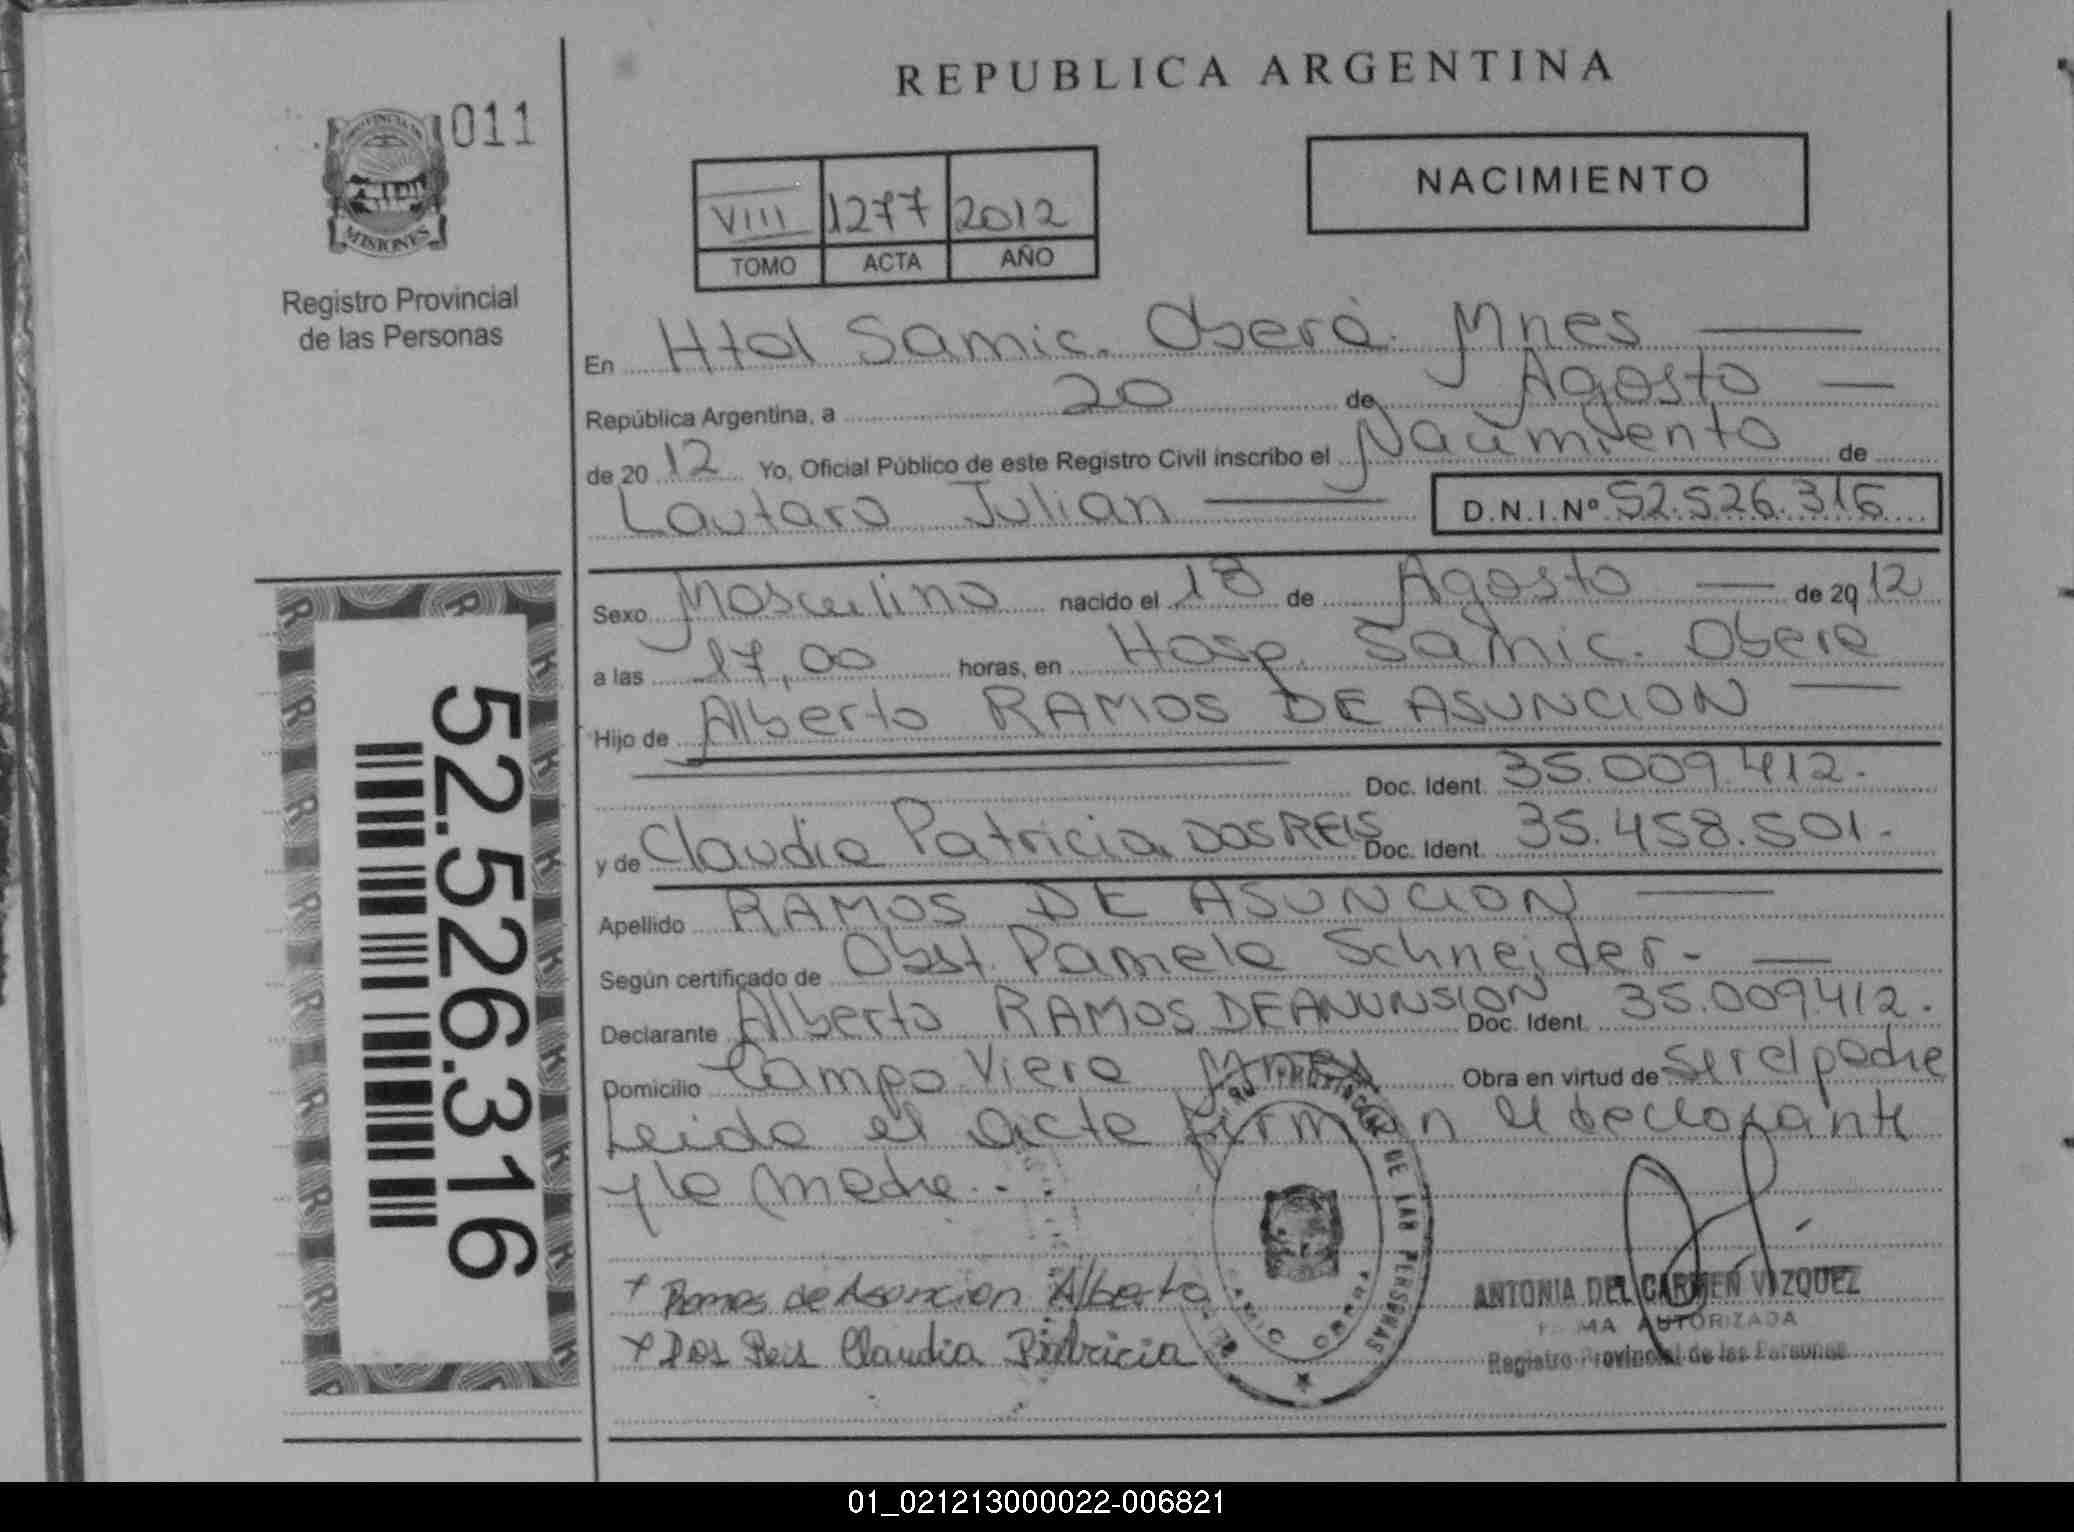 REPUBLICA ARGENTINA
011
MISIONES
Registro Provincial
de las Personas
NACIMIENTO
VIII 1277 2012
TOMO ACTA AÑO
En Htal Samic. Oberá. Mnes
República Argentina, a 20 de Agosto
de 2012 Yo, Oficial Público de este Registro Civil inscribo el Nacimiento de
Lautaro Julian D.N.I.Nº 52.526.316
Sexo Masculino nacido el 18 de Agosto de 2012
a las 17,00 horas, en Hosp. Samic. Obera
Hijo de Alberto RAMOS DE ASUNCION
Doc. Ident. 35.009.412.
y de Claudia Patricia DOS REIS Doc. Ident. 35.458.501.
Apellido RAMOS DE ASUNCION
Según certificado de Obst. Pamela Schneider.
Declarante Alberto RAMOS DE ANUNSION Doc. Ident. 35.009412.
Domicilio Campo Viera Mnes Obra en virtud de ser el padre
Leida el acta firman el declarante
y la madre.
+ Ramos de Asuncion Alberto
+ Dos Reis Claudia Patricia
ANTONIA DEL CARMEN VAZQUEZ
FIRMA AUTORIZADA
Registro Provincial de las Personas
52.526.316
01_021213000022-006821